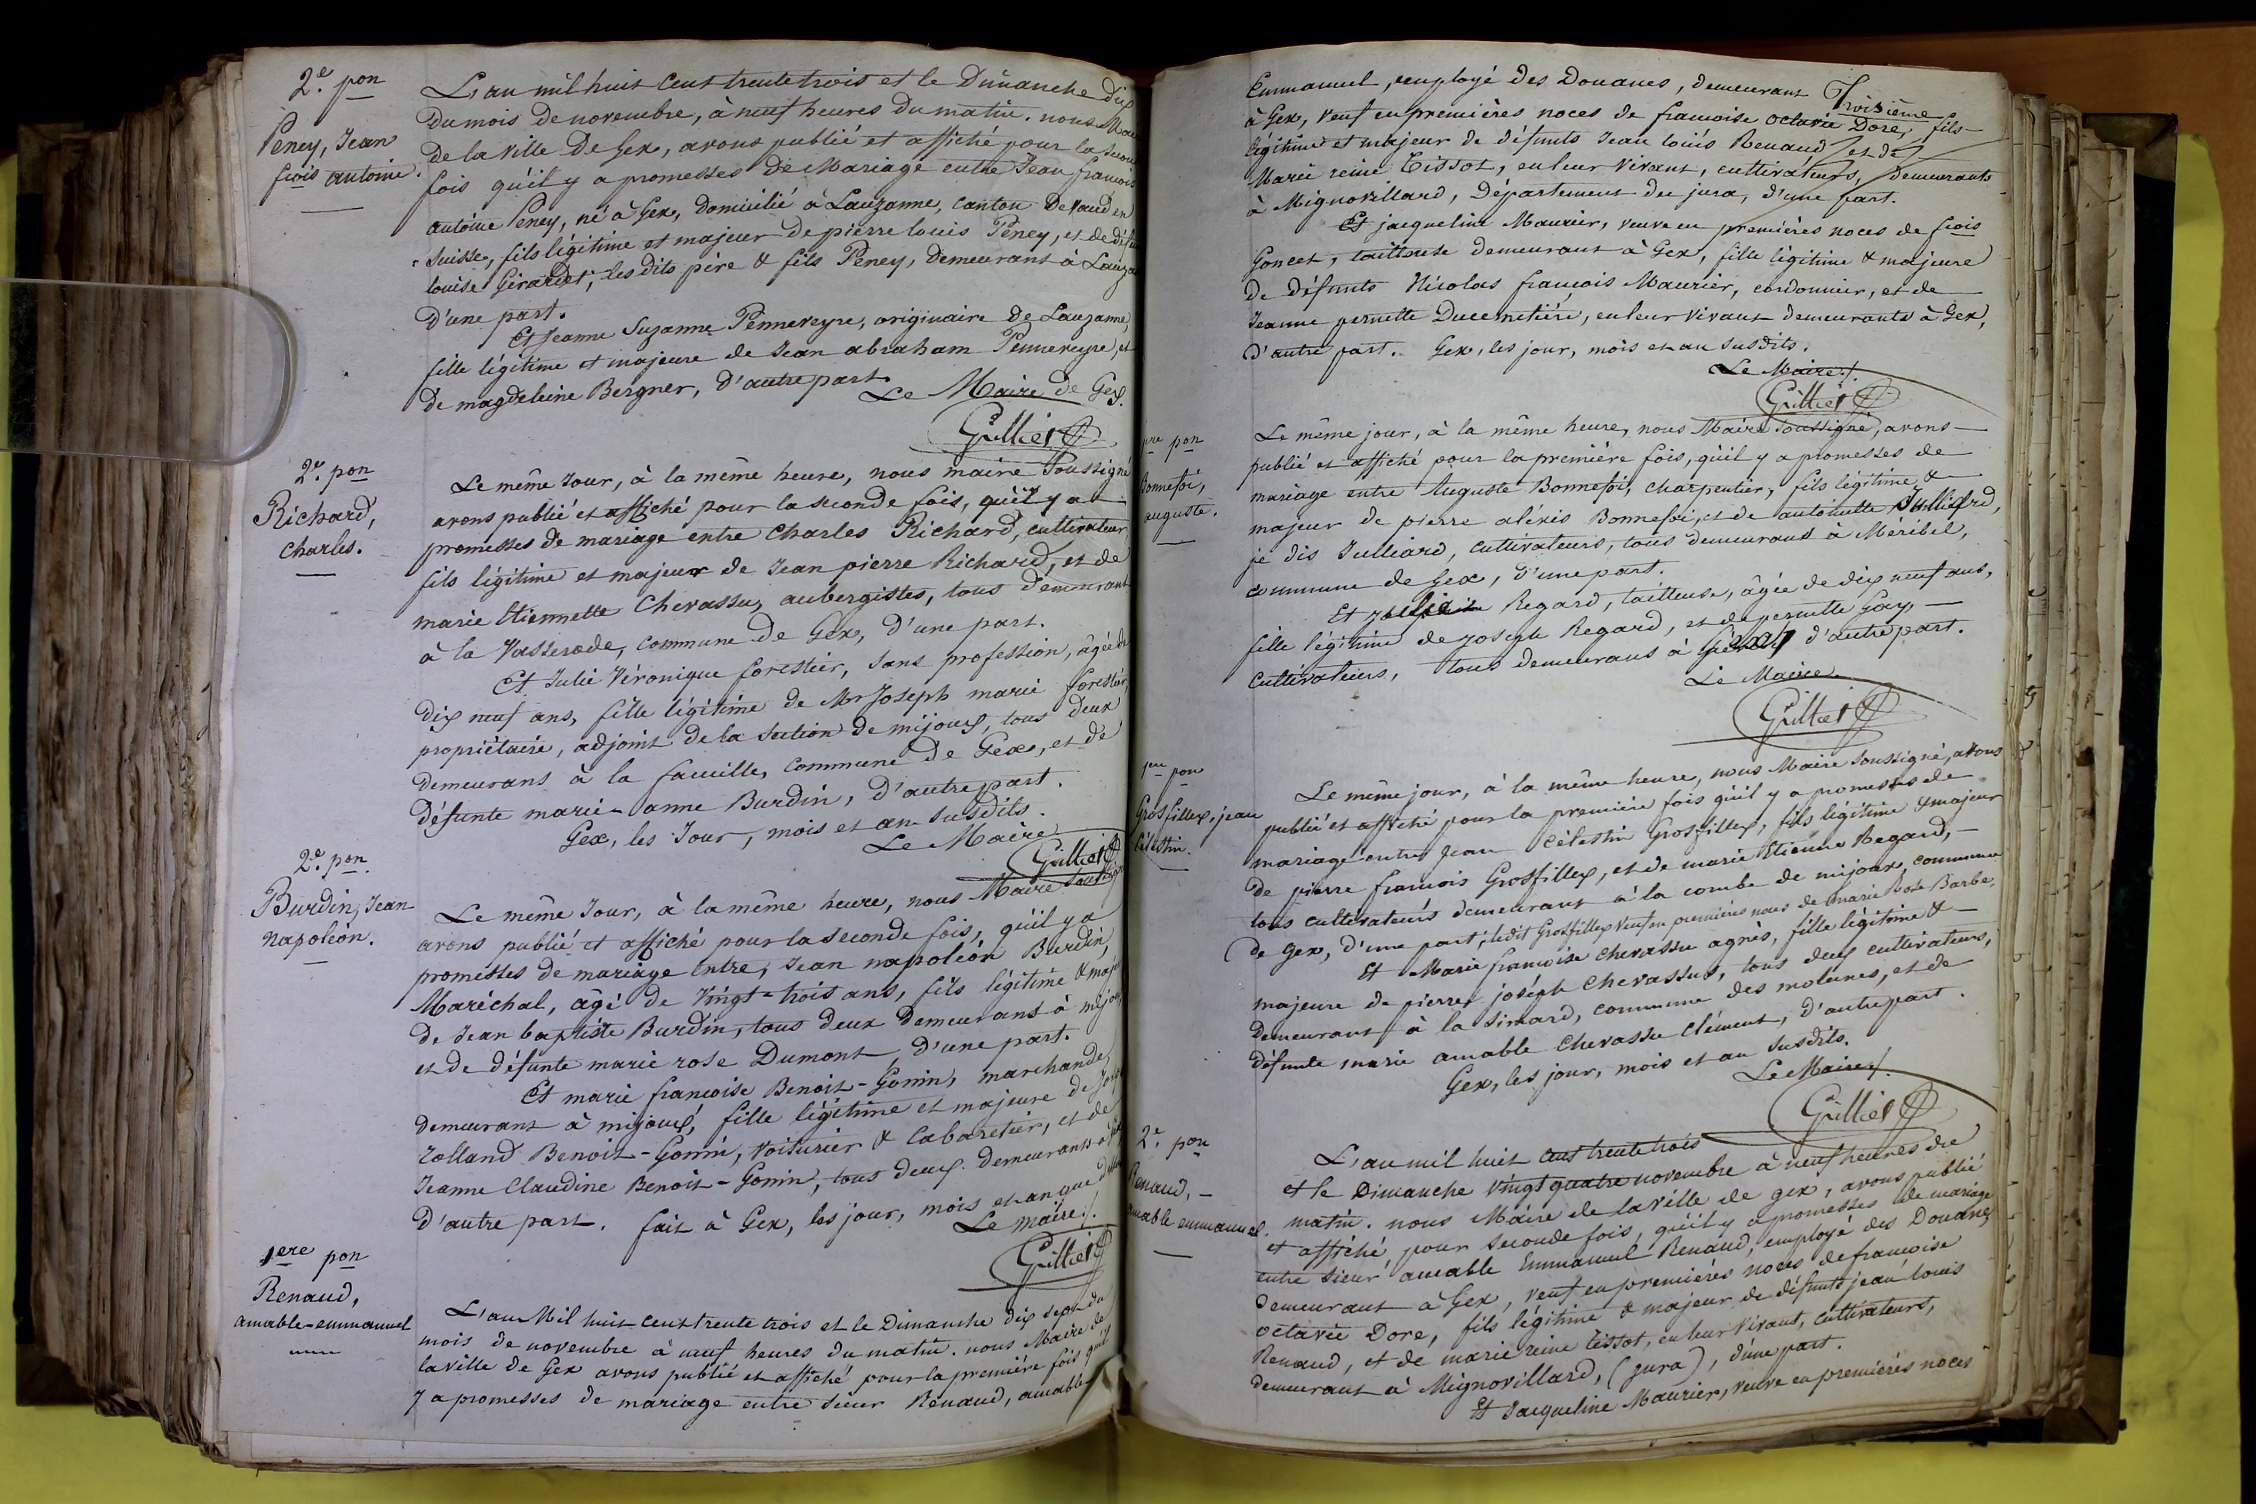 2.e pon
Peney, Jean
fcois antoine.
L'an mil huit cent trente trois et le Dimanche dix
du mois de novembre, à neuf heures du matin. nous Maire
de la ville de Gex, avons publié et affiché pour la
fois qu'il y a promesses de Mariage entre Jean francois
antoine Peney, né à Gex, domicilié à Lauzanne, canton de vaud en
suisse, fils légitime et majeur de pierre louis Peney, et de
louise Girardet; les dits père & fils Peney, demeurans à
d'une part.
Et Jeanne Suzanne Penneveyre, originaire de Lauzanne,
fille légitime et majeure de Jean abraham Penneveyre, et
de magdeleine Bergner, d'autre part.
Le Maire de Gex.
Gülliet
2.e pon
Richard,
Charles.
Le même Jour, à la même heure, nous maire Soussigné
avons publié et affiché pour la seconde fois, qu'il y a
promesses de mariage entre Charles Richard, cultivateur,
fils légitime et majeur de Jean pierre Richard, et de
marie Etiennette Chevassu, aubergistes, tous demeurant
à la Vasserode, commune de Gex, d'une part.
Et Julie Véronique forestier, sans profession, âgée de
dix neuf ans, fille légitime de Mr Joseph marie forestier,
propriétaire, adjoint de la section de mijoux, tous deux
demeurans à la faucille, commune de Gex, et de
défunte marie-anne Burdin, d'autre part.
Gex, les Jour, mois et an susdits.
Le Maire
Gülliet
2.e pon.
Burdin, Jean
napoléon.
Le même Jour, à la même heure, nous Maire
avons publié et affiché pour la seconde fois, qu'il y a
promesses de mariage entre, Jean napoléon Burdin,
Maréchal, âgé de Vingt-trois ans, fils légitime &
de Jean baptiste Burdin, tous deux demeurans à
et de défunte marie rose Dumont, d'une part.
Et marie francoise Benoit-Gonin, marchande,
demeurant à mijoux, fille légitime et majeure de
rolland Benoit-Gonin, voiturier & Cabaretier, et de
Jeanne Claudine Benoit-Gonin, tous deux demeurants
d'autre part. fait à Gex, les jour, mois et an que
Le maire./.
Gülliet
1ere pon
Renaud,
amable-emmanuel
L'an Mil huit cent trente trois et le Dimanche dix sept du
mois de novembre à neuf heures du matin. nous Maire de
la ville de Gex avons publié et affiché pour la première fois qu'il
y a promesses de mariage entre sieur Renaud, amable
Emmanuel, employé des Douanes, demeurant Troisième
à Gex, veuf en premières noces de francoise octavie Doré, fils
légitime et majeur de défunts Jean louis Renaud et de
Marie reine Tissot, en leur vivant, cultivateurs, demeurants
à Mignovillard, Département du jura, d'une part.
Et jacqueline Maurier, veuve en premières noces de fcois
Goncet, tailleuse demeurant à Gex, fille légitime & majeure
de défunts Nicolas francois Maurier, cordonnier, et de
Jeanne pernette Ducemetière, en leur vivant demeurants à Gex,
d'autre part. Gex, les jour, mois et an susdits.
Le Maire./.
Gülliet
pon
Bonnefoi,
auguste.
Le même jour, à la même heure, nous Maire soussigné, avons
publié et affiché pour la première fois, qu'il y a promesses de
mariage entre Auguste Bonnefoi, charpentier, fils légitime &
majeur de pierre aléxis Bonnefoi, et de antoinette
je dis Julliard, cultivateurs, tous demeurans à Méribel,
commune de Gex, d'une part.
Et Regard, tailleuse, âgée de dix neuf ans,
fille légitime de joseph Regard, et de pernette Gay,
cultivateurs, tous demeurans à d'autre part.
Le Maire
Gülliet
pon
Grosfillex, jean
Célestin.
Le même jour, à la même heure, nous Maire soussigné, avons
publié et affiché pour la première fois qu'il y a promesses de
mariage entre Jean Célestin Grosfillex, fils légitime & majeur
de pierre francois Grosfillex, et de marie Etienne Regard,
tous cultivateurs demeurant à la combe de mijoux, commune
de Gex, d'une part; ledit Grosfillex veuf en premières noces de marie rose Barbe,
Et Marie francoise chevassu agnès, fille légitime &
majeure de pierre joséph chevassus, tous deux cultivateurs,
demeurant à la Simard, commune des molunes, et de
défunte marie amable chevassu clément, d'autre part.
Gex, les jour, mois et an susdits.
Le Maire./.
Gülliet
2.e pon
Renaud,
amable emmanuel.
L'an mil huit cent trente trois
et le Dimanche vingt quatre novembre à neuf heures du
matin. nous Maire de la ville de gex, avons publié
et affiché pour seconde fois, qu'il y a promesses de mariage
entre sieur amable Emmanuel Renaud, employé des Douanes
demeurant à Gex, veuf en premières noces de francoise
octavie Doré, fils légitime & majeur de défunts jean louis
Renaud, et de marie reine tissot, en leur vivant, cultivateurs,
demeurant à Mignovillard, (jura), d'une part.
Et Jacqueline Maurier, veuve en premières noces